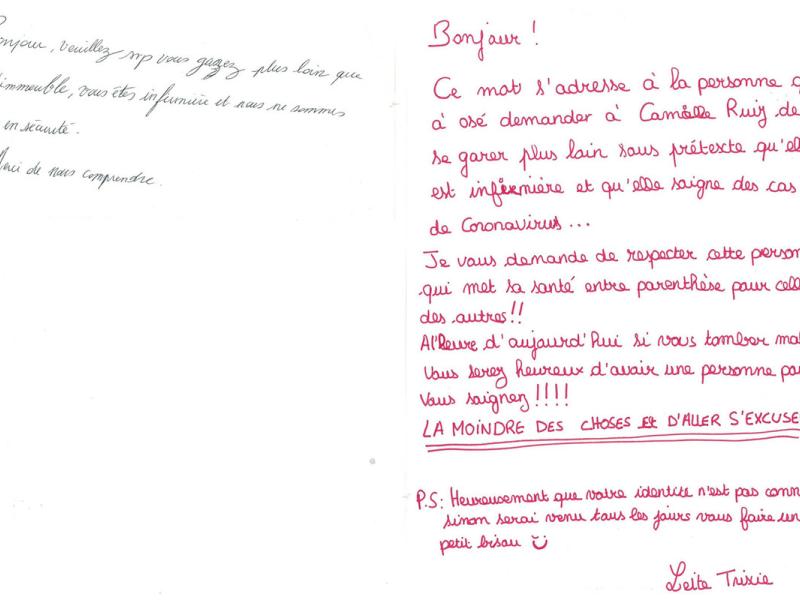 Bonjour, veuillez svp vous gagez plus loin que
l'immeuble, vous êtes infirmière et nous ne sommes
en sécurité.
Merci de nous comprendre.
Bonjour !
Ce mot s'adresse à la personne q
à osé demander à Camille Ruiz de
se garer plus loin sous prétexte qu'el
est infirmière et qu'elle soigne des cas
de Coronavirus ...
Je vous demande de respecter cette person
qui met sa santé entre parenthèse pour cell
des autres !!
A l'heure d'aujourd'hui si vous tomber ma
Vous serez heureux d'avoir une personne po
Vous soignez !!!!
LA MOINDRE DES CHOSES et D'ALLER S'EXCUSE
P.S : Heureusement que votre identité n'est pas conn
sinon serai venu tous les jours vous faire un
petit bisou
Leite Trixie